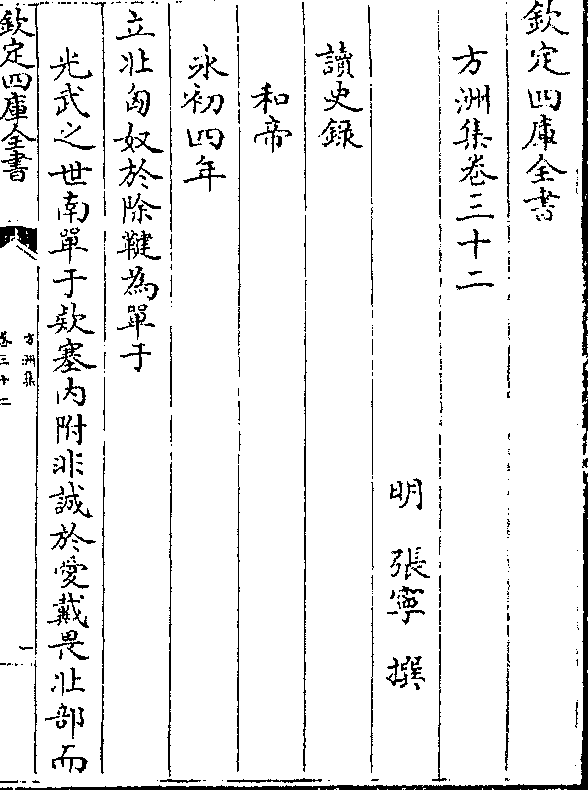 欽定四庫全書
方洲集卷三十二
明 張寧 撰
讀史録
和帝
永初四年
立北匈奴於除鞬為單于
光武之世南單于欵塞内附非誠於愛戴畏北部而
欽定四庫全書
方洲集
卷三十二
一